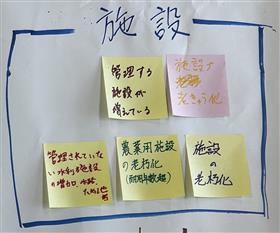 施設
管理する
施設が
増えている
施設の
老朽
老きゅう化
管理されていな
い水利施設
の増加 水路、
ため池
農業用施設
の老朽化
(耐用年数超)
施設
の
老朽化